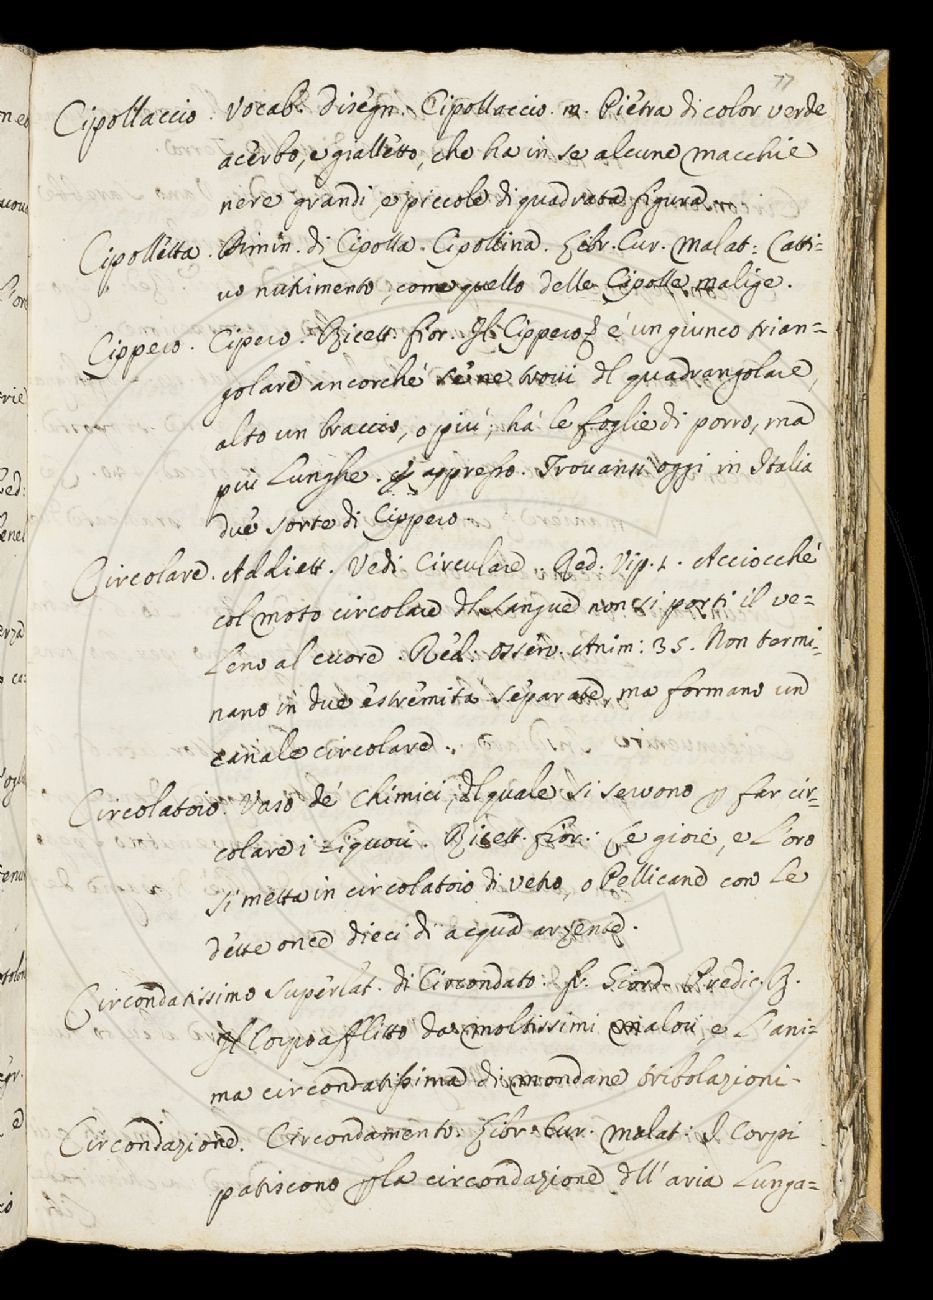 77
Cipollaccio. Vocab. Disegn. Cipollaccio. m. Pietra di color verde
acerbo, e gialletto, che ha in se alcune macchie
nere grandi, e piccole di quadrata figura
Cipolletta. Dimin. di Cipolla. Cipollina. Libr. Cur. Malat: Catti=
vo nutrimento, come quello delle Cipolle malige.
Cippero. Cipero. Ricett. Fior. Il Cippero é un giunco trian=
golare ancorché se ne trovi dl quadrangolare,
alto un braccio, o più; há le foglie di porro, ma
più lunghe. E appresso. Trovansi oggi in Italia
due sorte di Cippero
Circolare. Addiett. Vedi Circulare. Red. Vip. 1. Acciocché
col moto circolare dl sangue non si porti il ve=
leno al cuore. Red. Osserv. Anim: 35. Non termi=
nano in due estremita separate, ma formano un
canale circolare.
Circolatoio. Vaso de' Chimici, dl quale si servono p far cir=
colare i liquori. Ricett. Fior: Le gioie, e l'oro
si metta in circolatoio di vetro, o Pellicano con le
dette once dieci di acqua arzente.
Circondatissimo superlat. di Circondato: fr. Giord. Predic. R.
Il Corpo afflitto da moltissimi malori, e l'ani=
ma circondatissima di mondane tribolazioni-
Circondazione. Circondamento. Libr. Cur. Malat: I Corpi
patiscono p la circondazione dll'aria lunga=